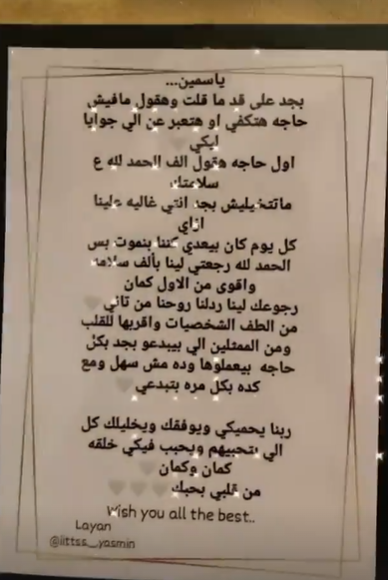 ياسمين...
بجد على قد ما قلت وهقول مافيش
حاجه هتكفي او هتعبر عن الي جوايا
ليكي
اول حاجه هقول الف الحمد لله ع
سلامتك
ماتتخيليش بجد انتي غاليه علينا
ازاي
كل يوم كان بيعدي كننا بنموت بس
الحمد لله رجعتي لينا بألف سلامه
واقوى من الاول كمان
رجوعك لينا ردلنا روحنا من تاني
من الطف الشخصيات واقربها للقلب
ومن الممثلين الي بيبدعو بجد بكل
حاجه بيعملوها وده مش سهل ومع
كده بكل مره بتبدعي
ربنا يحميكي ويوفقك ويخليلك كل
الي بتحبيهم ويحبب فيكي خلقه
كمان وكمان
من قلبي بحبك
Wish you all the best..
Layan
@iittss__yasmin